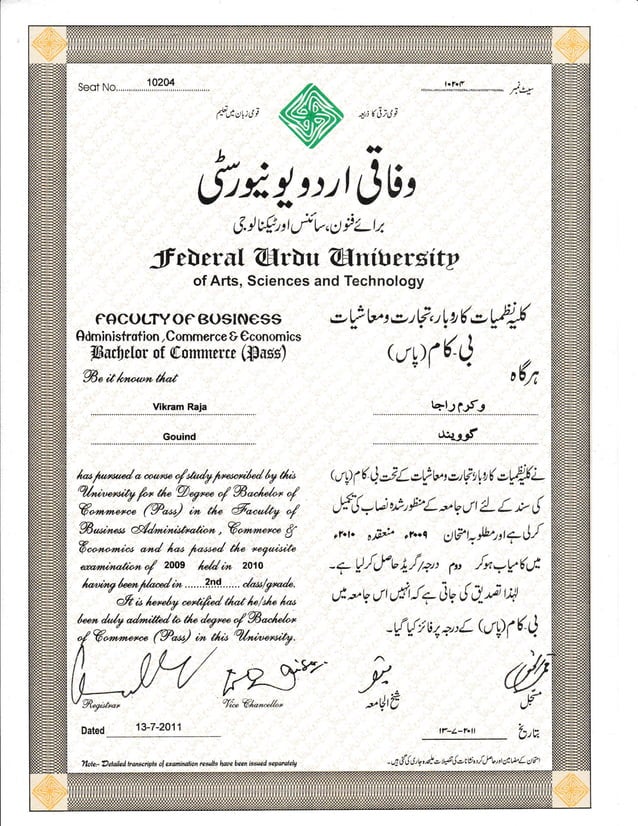 Seat No. 10204
سیٹ نمبر ۱۰۲۰۴
قومی ترقی کا ذریعہ
قومی زبان میں تعلیم
وفاقی اردو یونیورسٹی
برائے فنون، سائنس اور ٹیکنالوجی
Federal Urdu University
of Arts, Sciences and Technology
FACULTY OF BUSINESS
Administration, Commerce & Economics
Bachelor of Commerce (Pass)
Be it known that
Vikram Raja
Gouind
has pursued a course of study prescribed by this
University for the Degree of Bachelor of
Commerce (Pass) in the Faculty of
Business Administration, Commerce &
Economics and has passed the requisite
examination of 2009 held in 2010
having been placed in 2nd class/grade.
It is hereby certified that he/she has
been duly admitted to the degree of Bachelor
of Commerce (Pass) in this University.
کلیہ نظمیات کاروبار، تجارت و معاشیات
بی۔کام (پاس)
ہرگاہ
وکرم راجا
گوویند
نے کلیہ نظمیات کاروبار، تجارت و معاشیات کے تحت بی۔کام (پاس)
کی سند کے لئے اس جامعہ کے منظور شدہ نصاب کی تکمیل
کرلی ہے اور مطلوبہ امتحان ۲۰۰۹ء منعقدہ ۲۰۱۰ء
میں کامیاب ہوکر دوم درجہ/گریڈ حاصل کرلیا ہے۔
لہٰذا تصدیق کی جاتی ہے کہ انہیں اس جامعہ میں
بی۔کام (پاس) کے درجہ پر فائز کیا گیا۔
Registrar
Vice Chancellor
شیخ الجامعہ
مسجل
Dated 13-7-2011
بتاریخ ۱۳-۷-۲۰۱۱
Note:- Detailed transcripts of examination results have been issued separately
امتحان کے مضامین اور حاصل کردہ نشانات کی تفصیلات علیحدہ جاری کی گئی ہیں۔